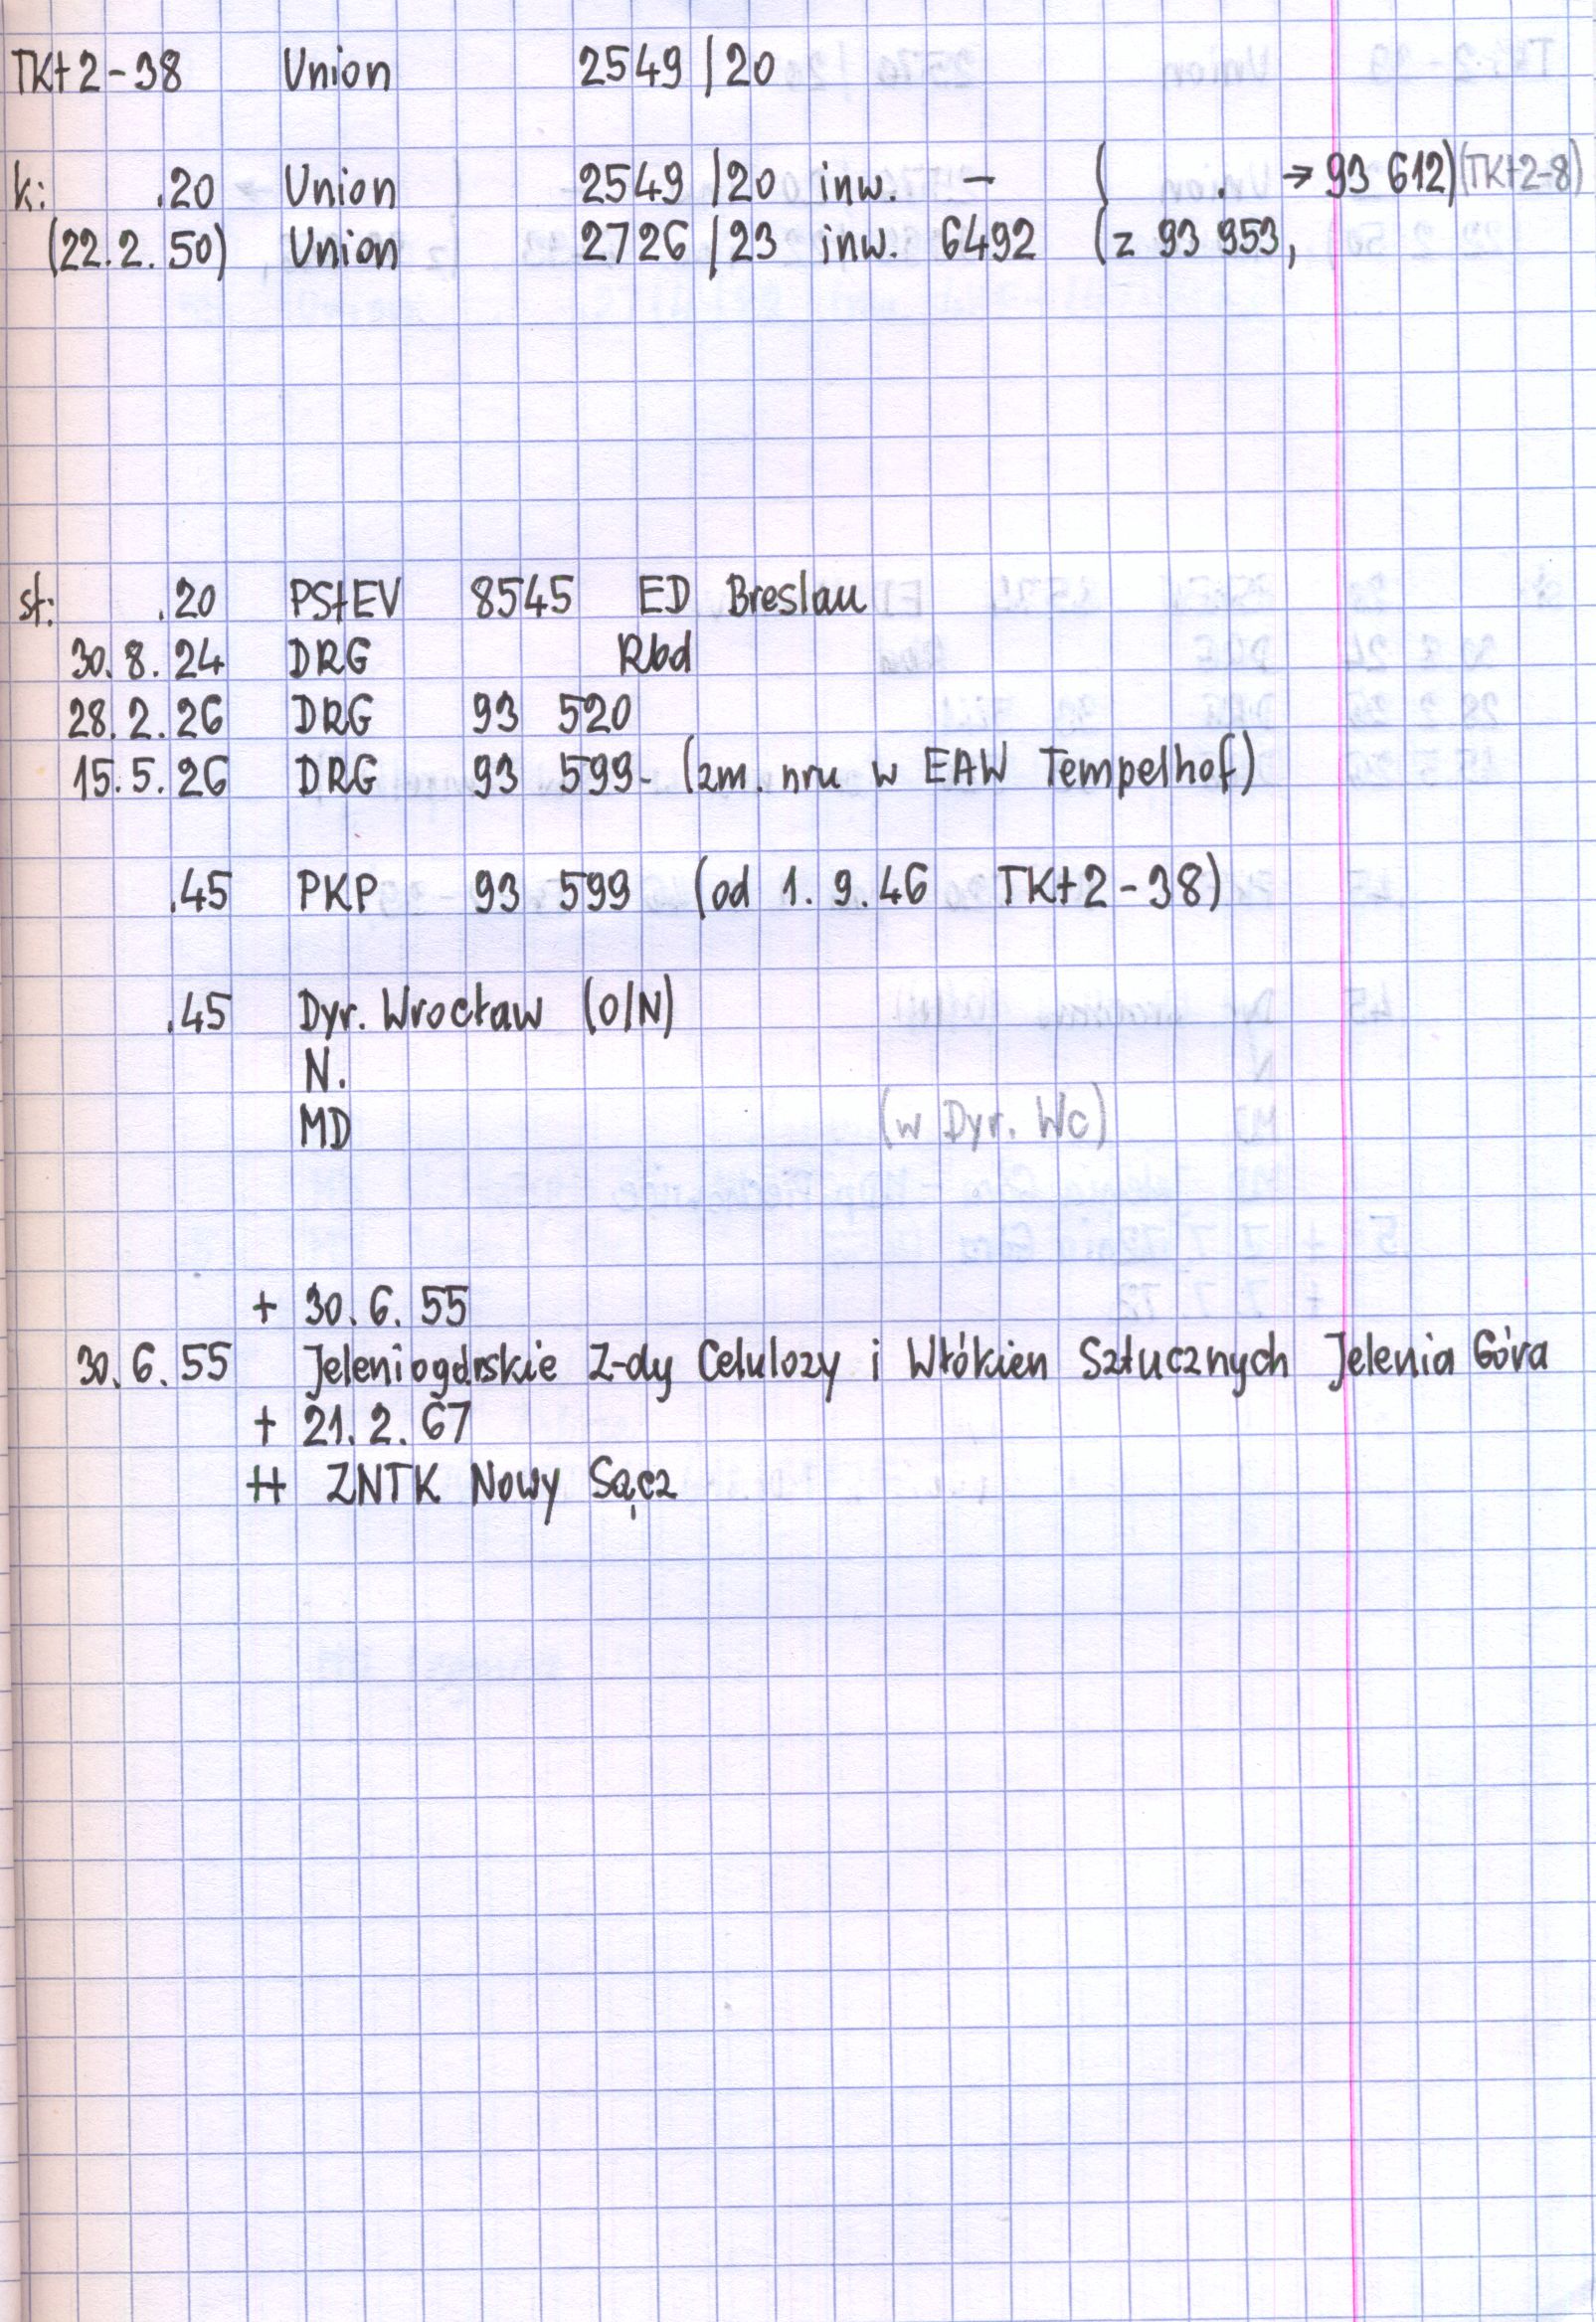 TKt2-38 Union 2549/20
k: .20 Union 2549/20 inw. - ( . → 93 612) (TKt2-8)
(22.2.50) Union 2726/23 inw. 6492 (z 93 953,
st: .20 PStEV 8545 ED Breslau
30.8.24 DRG Rbd
28.2.26 DRG 93 520
15.5.26 DRG 93 599- (zm. nru w EAW Tempelhof)
.45 PKP 93 599 (od 1.9.46 TKt2-38)
.45 Dyr. Wrocław (O/N)
N.
MD (w Dyr. Wc)
+ 30.6.55
30.6.55 Jeleniogórskie Z-dy Celulozy i Włókien Sztucznych Jelenia Góra
+ 21.2.67
++ ZNTK Nowy Sącz